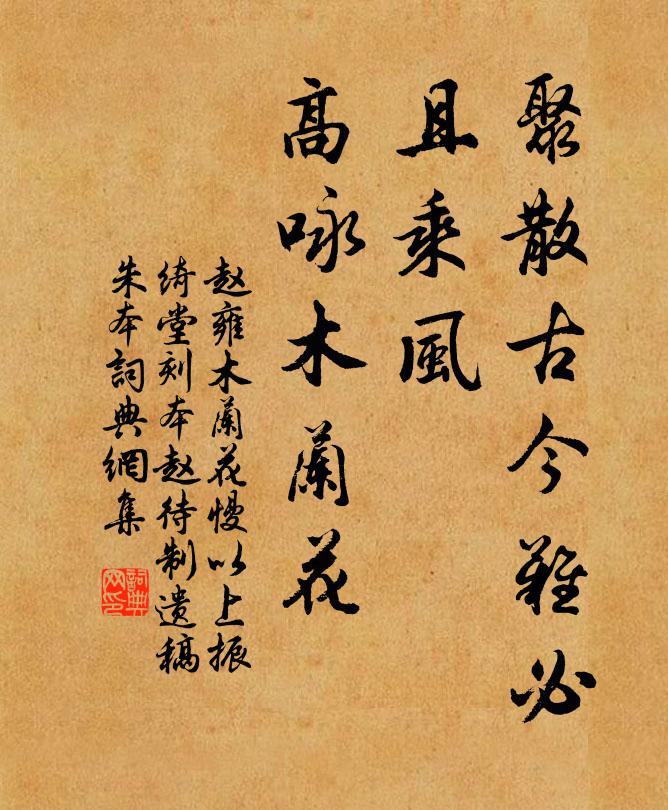 聚散古今難必
且乘風
高咏木蘭花
赵雍木蘭花慢以上振
绮堂刻本赵待制遗稿
朱本詞典網集
詞典网印